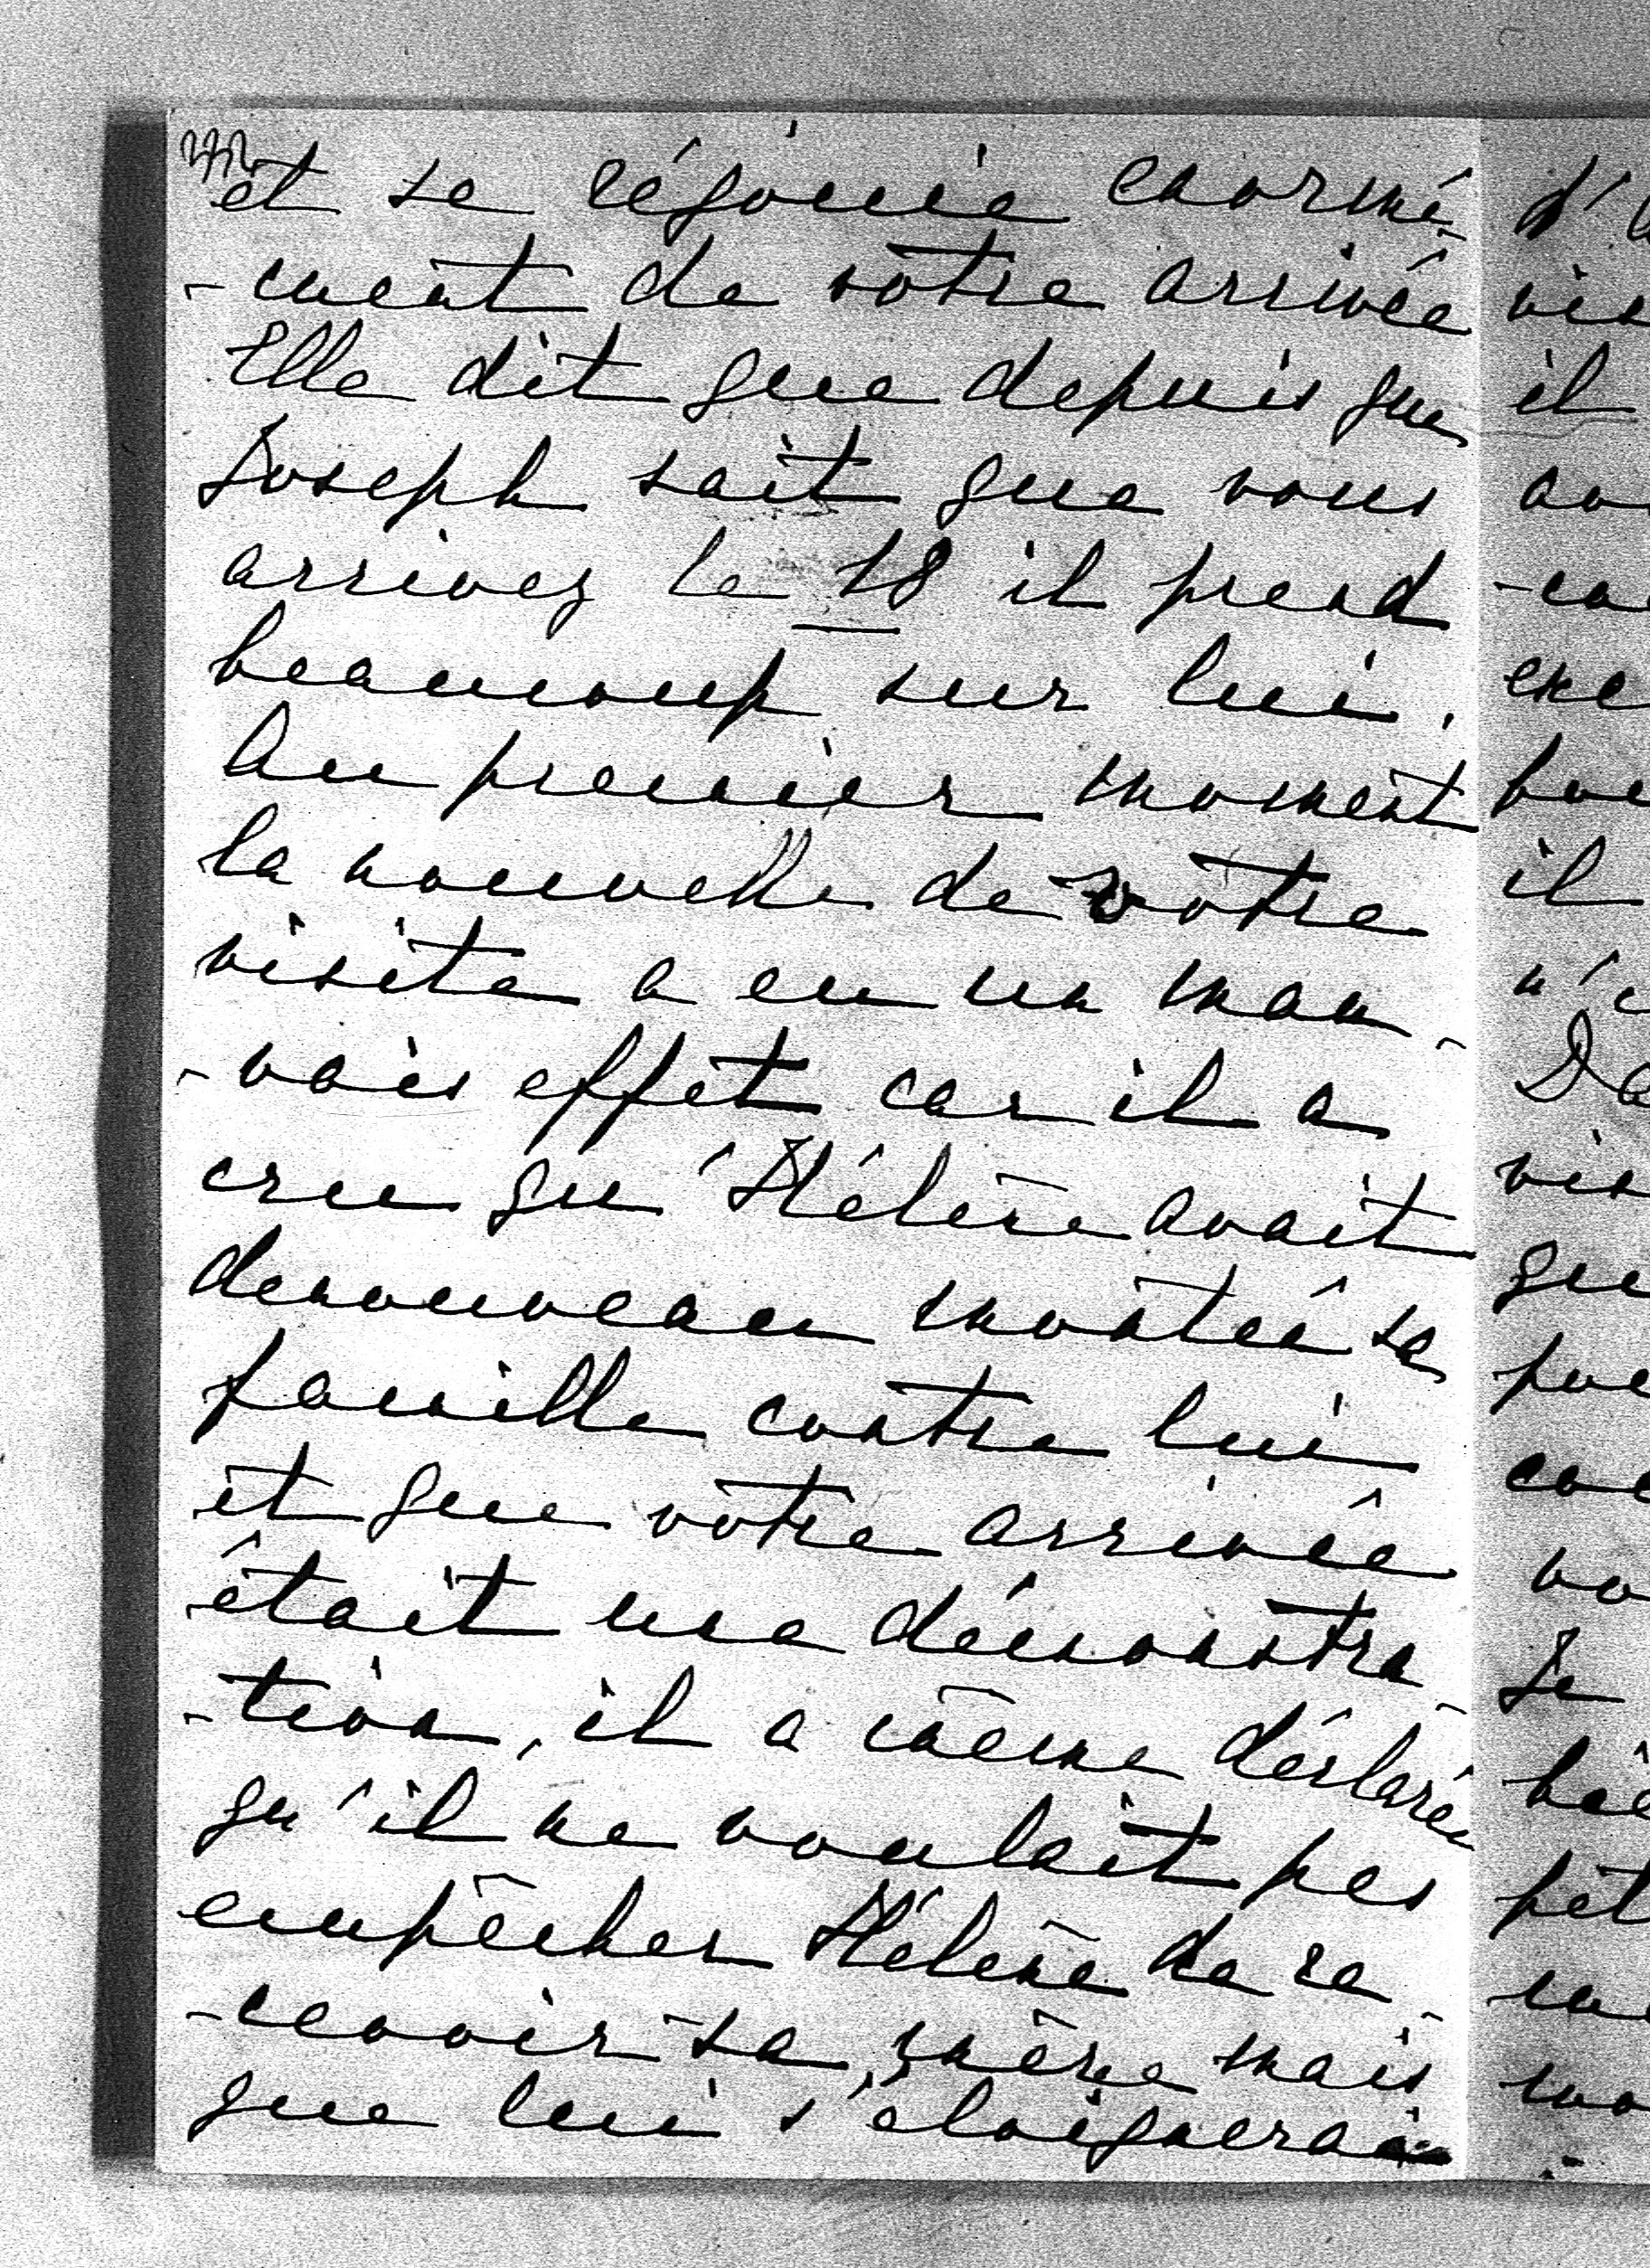 et se réjouie enormé-
-ment de vôtre arrivée
Elle dit que depuis que
Joseph sait que vous
arrivez le 18 il prend
beaucoup sur lui.
Au premier moment
la nouvelle de vôtre
visite a eu un mau-
-vais effet car il a
cru qu'Hélène avait
denouveau montée sa
famille contre lui
et que vôtre arrivée
était une démonstra-
-tion, il a même déclarée
qu'il ne voulait pas
empêcher Hélène de re-
-cevoir sa mère mais
que lui s'éloignerai